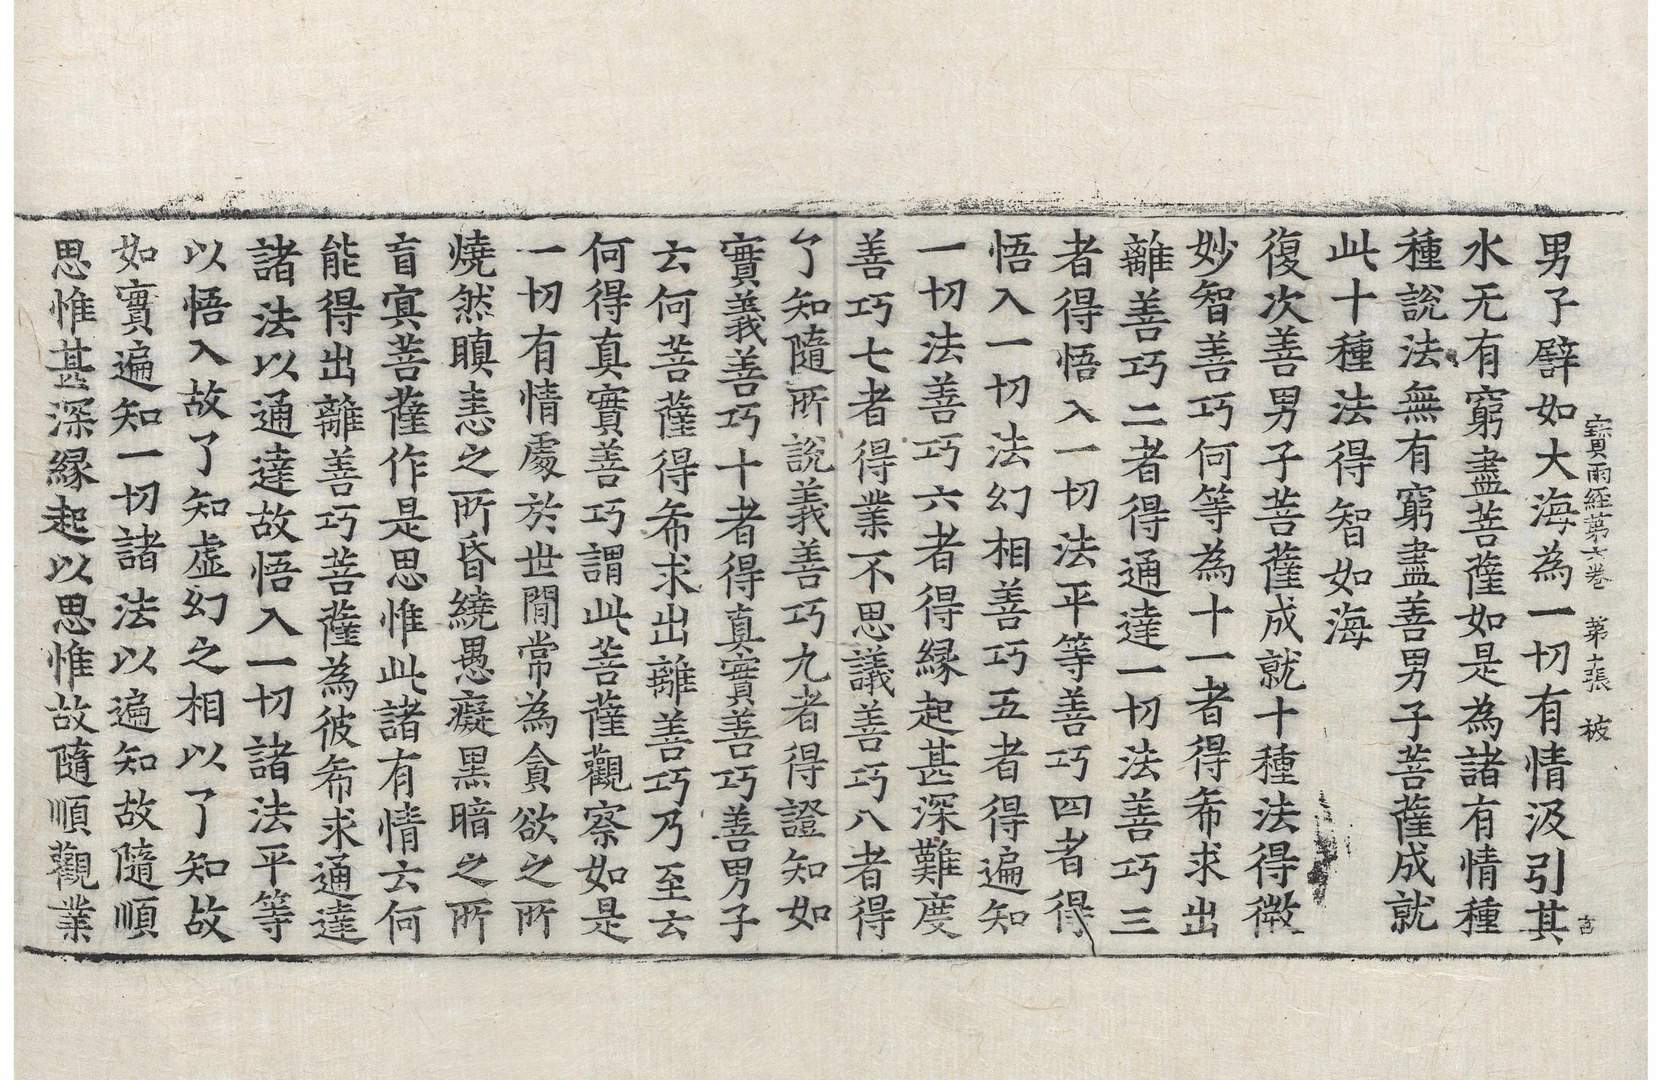 寶雨經第六卷　第十張　被
男子譬如大海為一切有情汲引其
水无有窮盡菩薩如是為諸有情種
種說法無有窮盡善男子菩薩成就
此十種法得智如海
復次善男子菩薩成就十種法得微
妙智善巧何等為十一者得希求出
離善巧二者得通達一切法善巧三
者得悟入一切法平等善巧四者得
悟入一切法幻相善巧五者得遍知
一切法善巧六者得縁起甚深難度
善巧七者得業不思議善巧八者得
了知隨所說義善巧九者得證知如
實義善巧十者得真實善巧善男子
云何菩薩得希求出離善巧乃至云
何得真實善巧謂此菩薩觀察如是
一切有情處於世間常為貪欲之所
燒然瞋恚之所昏繞愚癡黑暗之所
盲㝠菩薩作是思惟此諸有情云何
能得出離善巧菩薩為彼希求通達
諸法以通達故悟入一切諸法平等
以悟入故了知虛幻之相以了知故
如實遍知一切諸法以遍知故隨順
思惟甚深縁起以思惟故隨順觀業